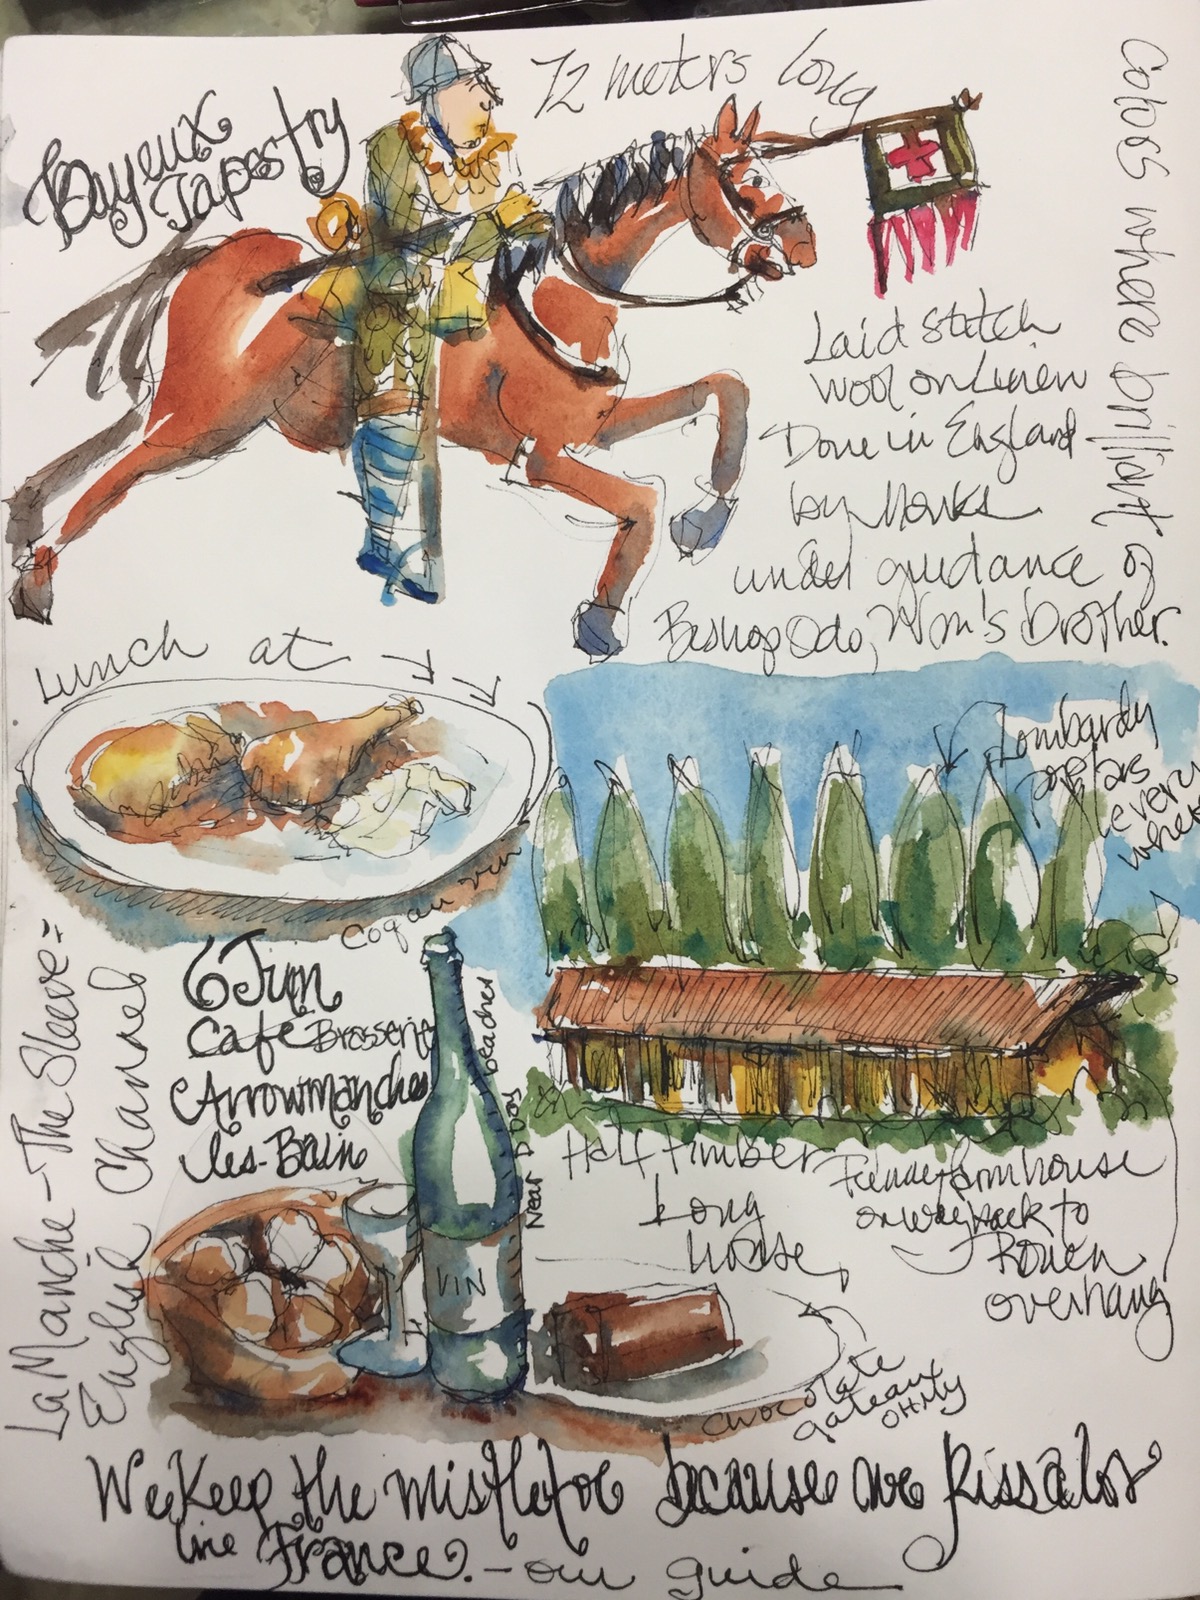 Bayeux
Tapestry
72 meters long
Colors where brilliant
Laid stitch
wool on Linen
Done in England
by Monks
under guidance of
Bishop Odo, Wm's brother.
Lunch at
Coq au vin
Lombardy
poplars
every
where
6 Juin
Cafe Brasserie
Arrowmanches
les-Bain
Near D Day beaches
VIN
La Manche - The Sleeve =
English Channel
Half timber
Long
house
farmhouse
on way back to
Rouen
overhang
chocolate
gateaux
OH My
We Keep the mistletoe because we kiss a lot
in France. - our guide